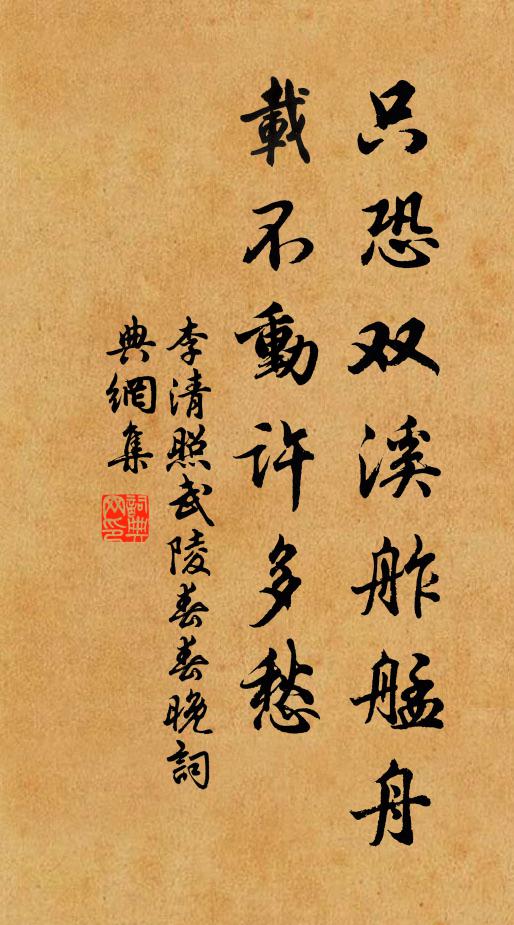 只恐双溪舴艋舟
載不動許多愁
李清照武陵春春晚詞
典網集
詞典网印